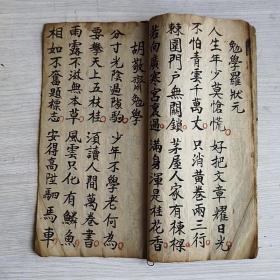 勉學羅狀元
人生年少莫慌慌 好把文章耀日光
不怕青雲千萬丈 只消黃卷兩三行
棘圍門戶無關鎖 茅屋人家有棟樑
若向廣寒宮裏過 滿身渾是桂花香
胡敬齋勉學
分寸光陰過隙駒 少年不學老何為
要攀天上五枝桂 須讀人間萬卷書
雨露不滋無本草 風雲只化有鱗魚
相如不奮題標志 安得高陞駟馬車